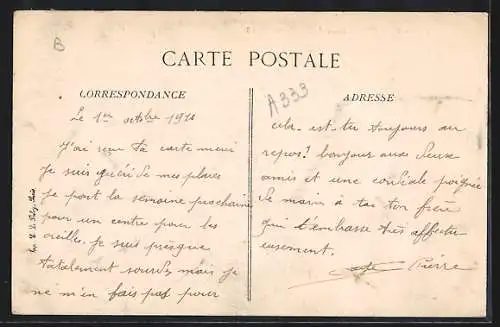 B
CARTE POSTALE
CORRESPONDANCE
Le 1er octobre 191
J'ai reçu ta carte merci
Je suis guéri de mes plaies
je part la semaine prochaine
pour un centre pour les
oreilles. Je suis presque
totalement sourd, mais je
ne m'en fais pas pour
A 333
ADRESSE
cela. est-tu toujours au
repos? bonjour aux deux
amis et une cordiale poignée
de main à toi ton frère
qui t'embrasse très affectu
eusement.
Pierre